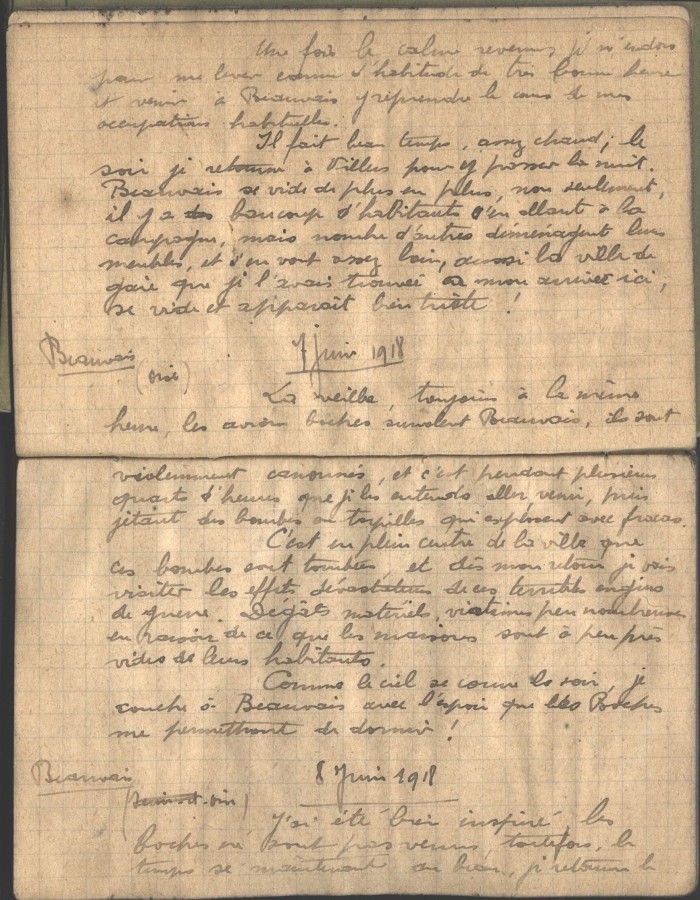 Une fois le calme revenu, je m'endors
pour me lever comme d'habitude de très bonne heure
et venir à Beauvais y reprendre le cours de mes
occupations habituelles.
Il fait beau temps, assez chaud; le
soir je retourne à Villers pour y passer la nuit.
Beauvais se vide de plus en plus, non seulement,
il y a beaucoup d'habitants s'en allant à la
campagne, mais nombre d'autres déménagent leurs
meubles, et s'en vont assez loin, aussi la ville de
gaie que je l'avais trouvée à mon arrivée ici,
se vide et apparait bien triste !
Beauvais 7 Juin 1918
(Oise)
La veille, toujours à la même
heure, les avions boches survolent Beauvais, ils sont
violemment canonnés, et c'est pendant plusieurs
quarts d'heures que je les entends aller, venir, puis
jetant des bombes ou torpilles qui explosent avec fracas.
C'est en plein centre de la ville que
ces bombes sont tombées, et dès mon retour je vais
visiter les effets dévastateurs de ces terribles engins
de guerre. Dégâts matériels, victimes peu nombreuses
en raison de ce que les maisons sont à peu près
vides de leurs habitants.
Comme le ciel se couvre le soir, je
couche à Beauvais avec l'espoir que les Boches
me permettront de dormir !
Beauvais 8 Juin 1918
J'ai été bien inspiré, les
boches ne sont pas venus, toutefois, le
temps se maintenant au beau, je retourne le